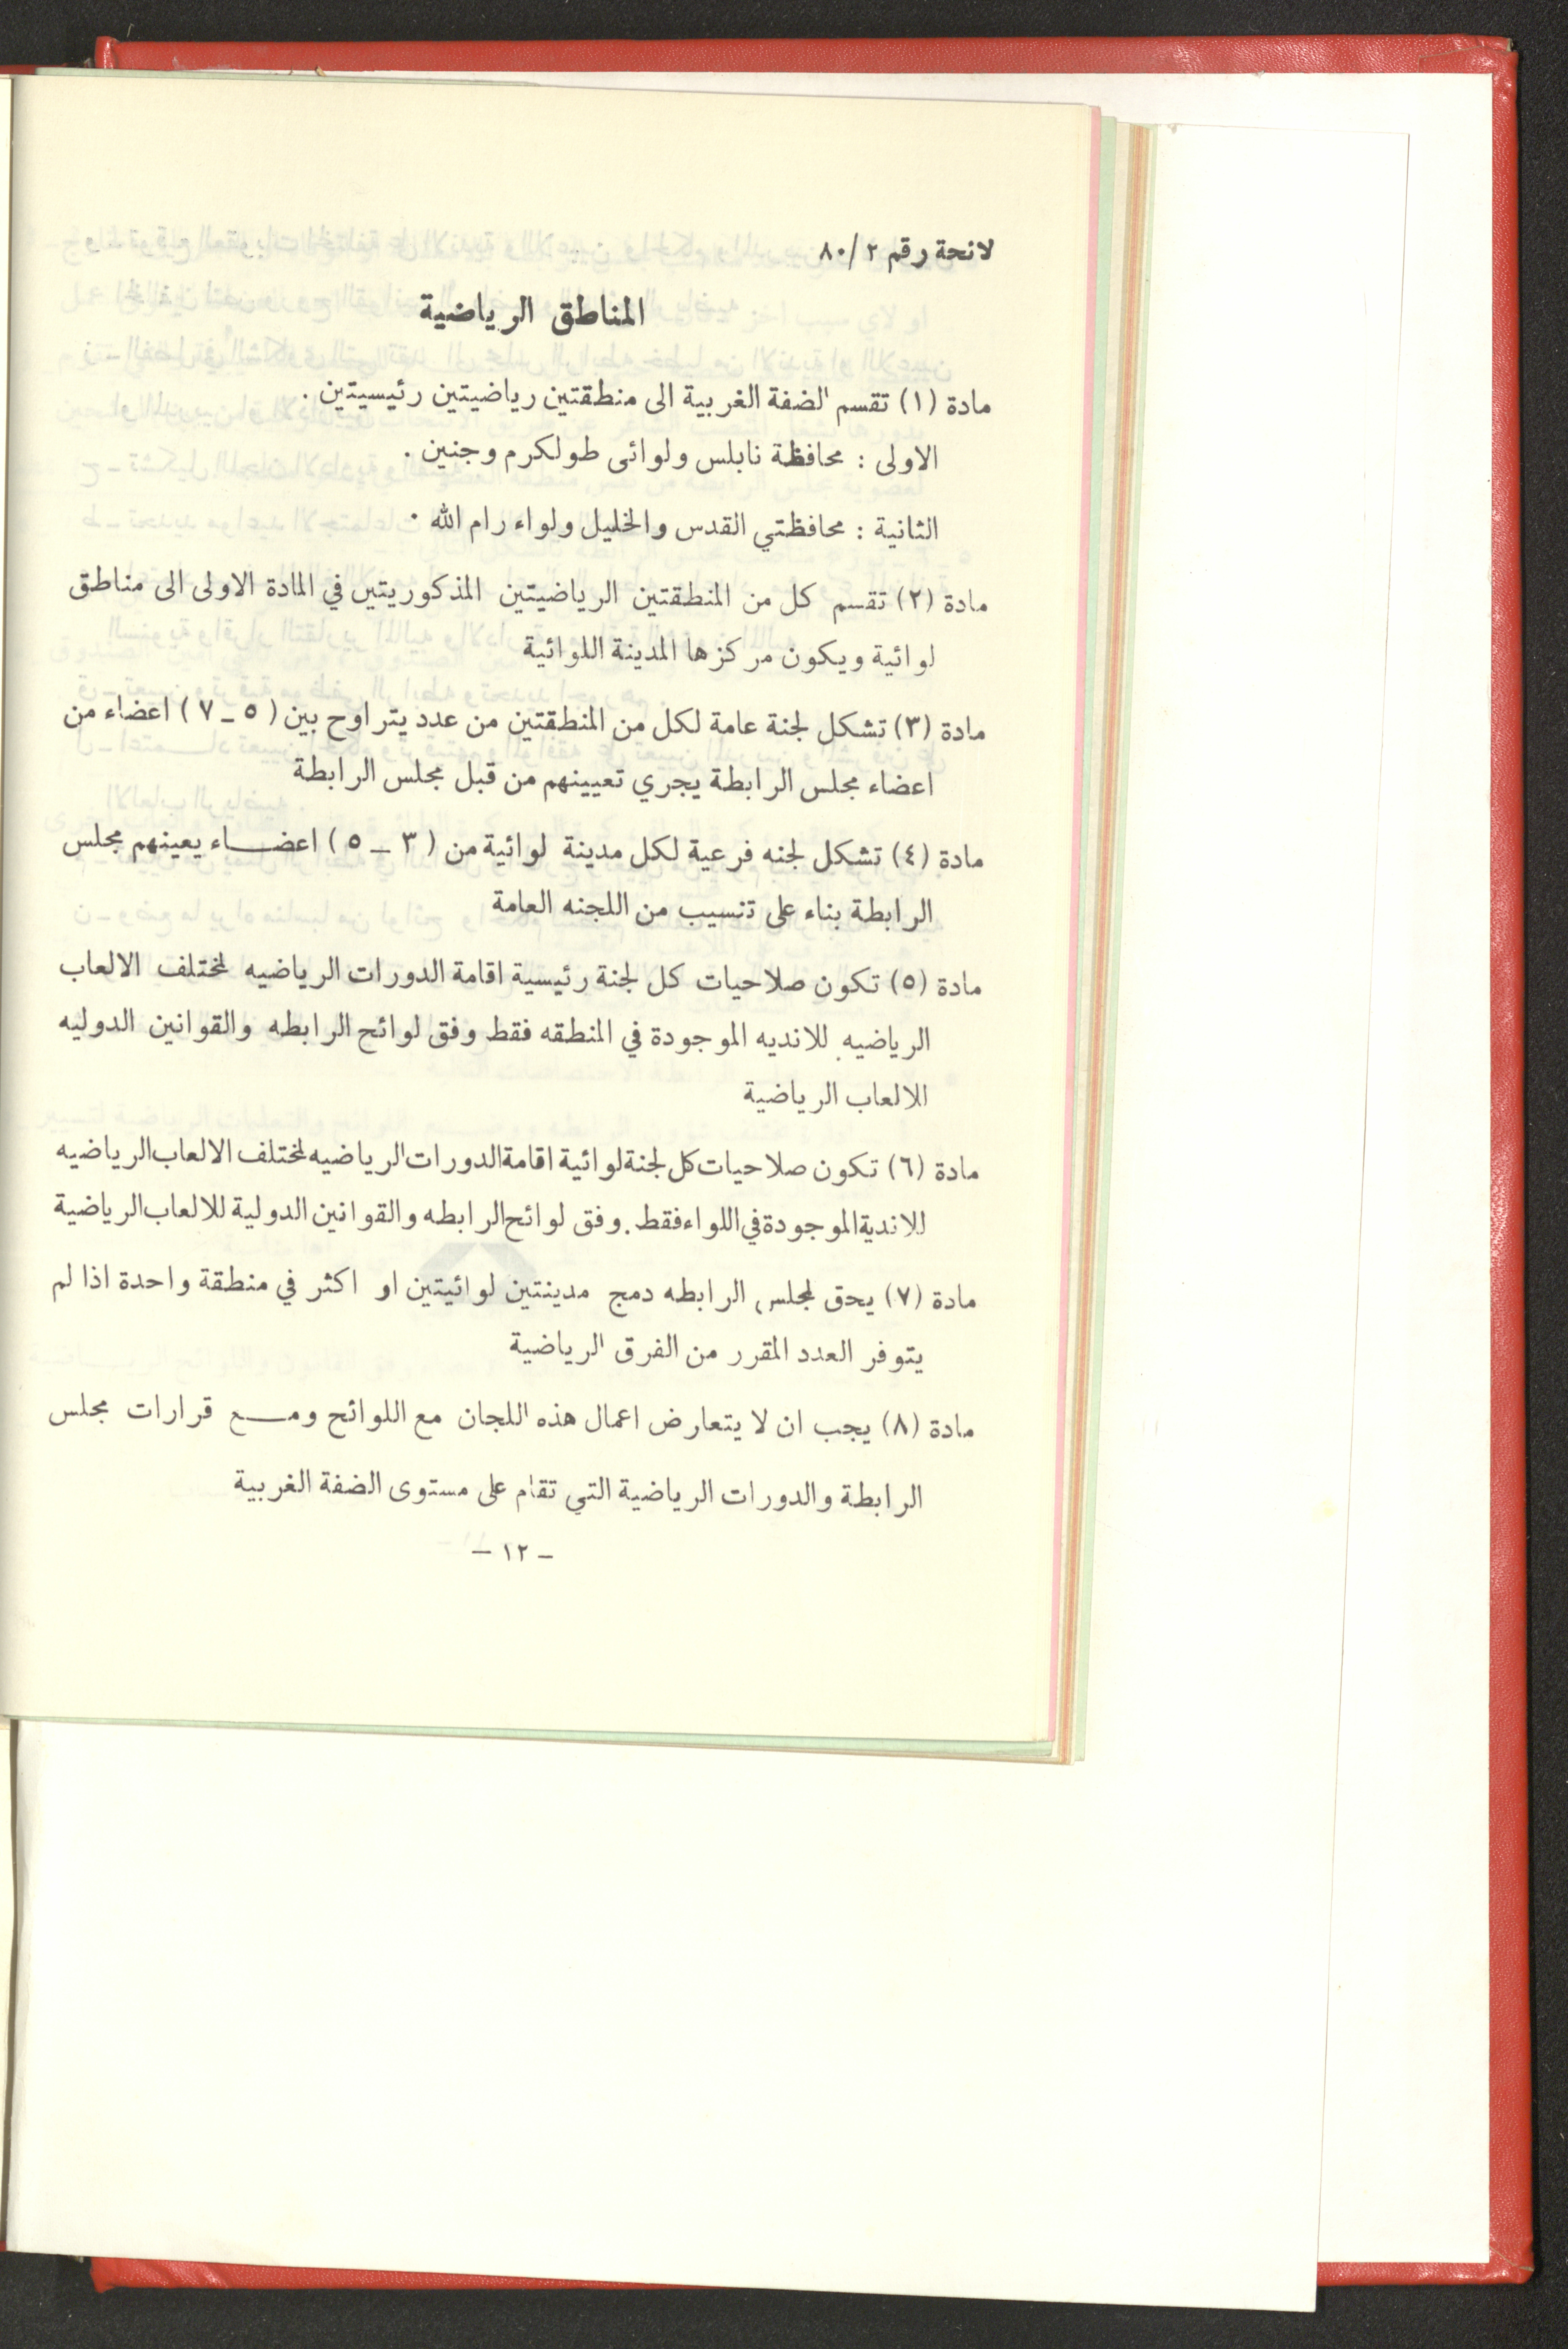 لائحة رقم ٢ /٨٠
المناطق الرياضية
مادة (١) تقسم الضفة الغربية الى منطقتين رياضيتين رئيسيتين .
الاولى : محافظة نابلس ولوائى طولكرم وجنين .
الثانية : محافظتي القدس والخليل ولواء رام الله .
مادة (٢) تقسم كل من المنطقتين الرياضيتين المذكوريتين في المادة الاولى الى مناطق
لوائية ويكون مركزها المدينة اللوائية
مادة (٣) تشكل لجنة عامة لكل من المنطقتين من عدد يتراوح بين ( ٥ _ ٧ ) اعضاء من
اعضاء مجلس الرابطة يجري تعيينهم من قبل مجلس الرابطة
مادة (٤) تشكل لجنه فرعية لكل مدينة لوائية من ( ٣ _ ٥ ) اعضـــاء يعينهم مجلس
الرابطة بناء على تنسيب من اللجنه العامة
مادة (٥) تكون صلاحيات كل لجنة رئيسية اقامة الدورات الرياضيه لمختلف الالعاب
الرياضيه للانديه الموجودة في المنطقه فقط وفق لوائح الرابطه والقوانين الدوليه
للالعاب الرياضية
مادة (٦) تكون صلاحيات كل لجنة لوائية اقامة الدورات الرياضيه لمختلف الالعاب الرياضيه
للاندية الموجودة في اللواء فقط . وفق لوائح الرابطه والقوانين الدولية للالعاب الرياضية
مادة (٧) يحق لمجلس الرابطه دمج مدينتين لوائيتين او اكثر في منطقة واحدة اذا لم
يتوفر العدد المقرر من الفرق الرياضية
مادة (٨) يجب ان لا يتعارض اعمال هذه اللجان مع اللوائح ومـــع قرارات مجلس
الرابطة والدورات الرياضية التي تقام على مستوى الضفة الغربية
_ ١٢ _